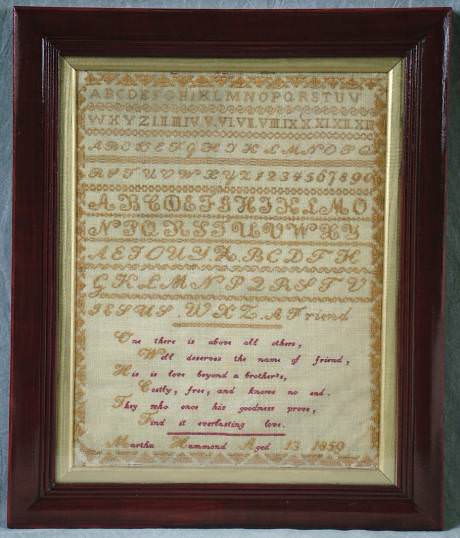 ABCDEFGHIKLMNOPQRSTUV
WXYZ I II III IV V VI VII VIII IX X XI XII XIII
ABCDEFGHIKLMNOPQ
RSTUVWXYZ1234567890
ABCDEFGHIKLMO
NPQRSTUVWXY
AEIOUYZ.BCDFH
GKLMNPQRSTV
JESUS.WXZ.A Friend
One there is above all others,
Well deserves the name of friend,
His is love beyond a brother's,
Costly, free, and knows no end.
They who once his goodness prove,
Find it everlasting love.
Martha Hammond Aged 13 1859